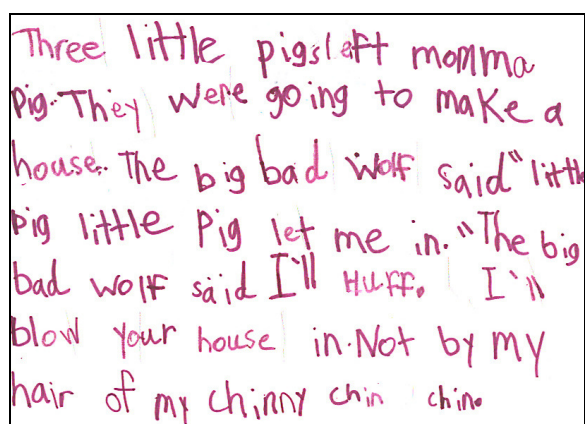 Three little pigs left momma
Pig. They were going to make a
house. The big bad wolf said "little
pig little Pig let me in." The big
bad wolf said I'll HUFF. I'll
blow your house in. Not by my
hair of my chinny chin chin.